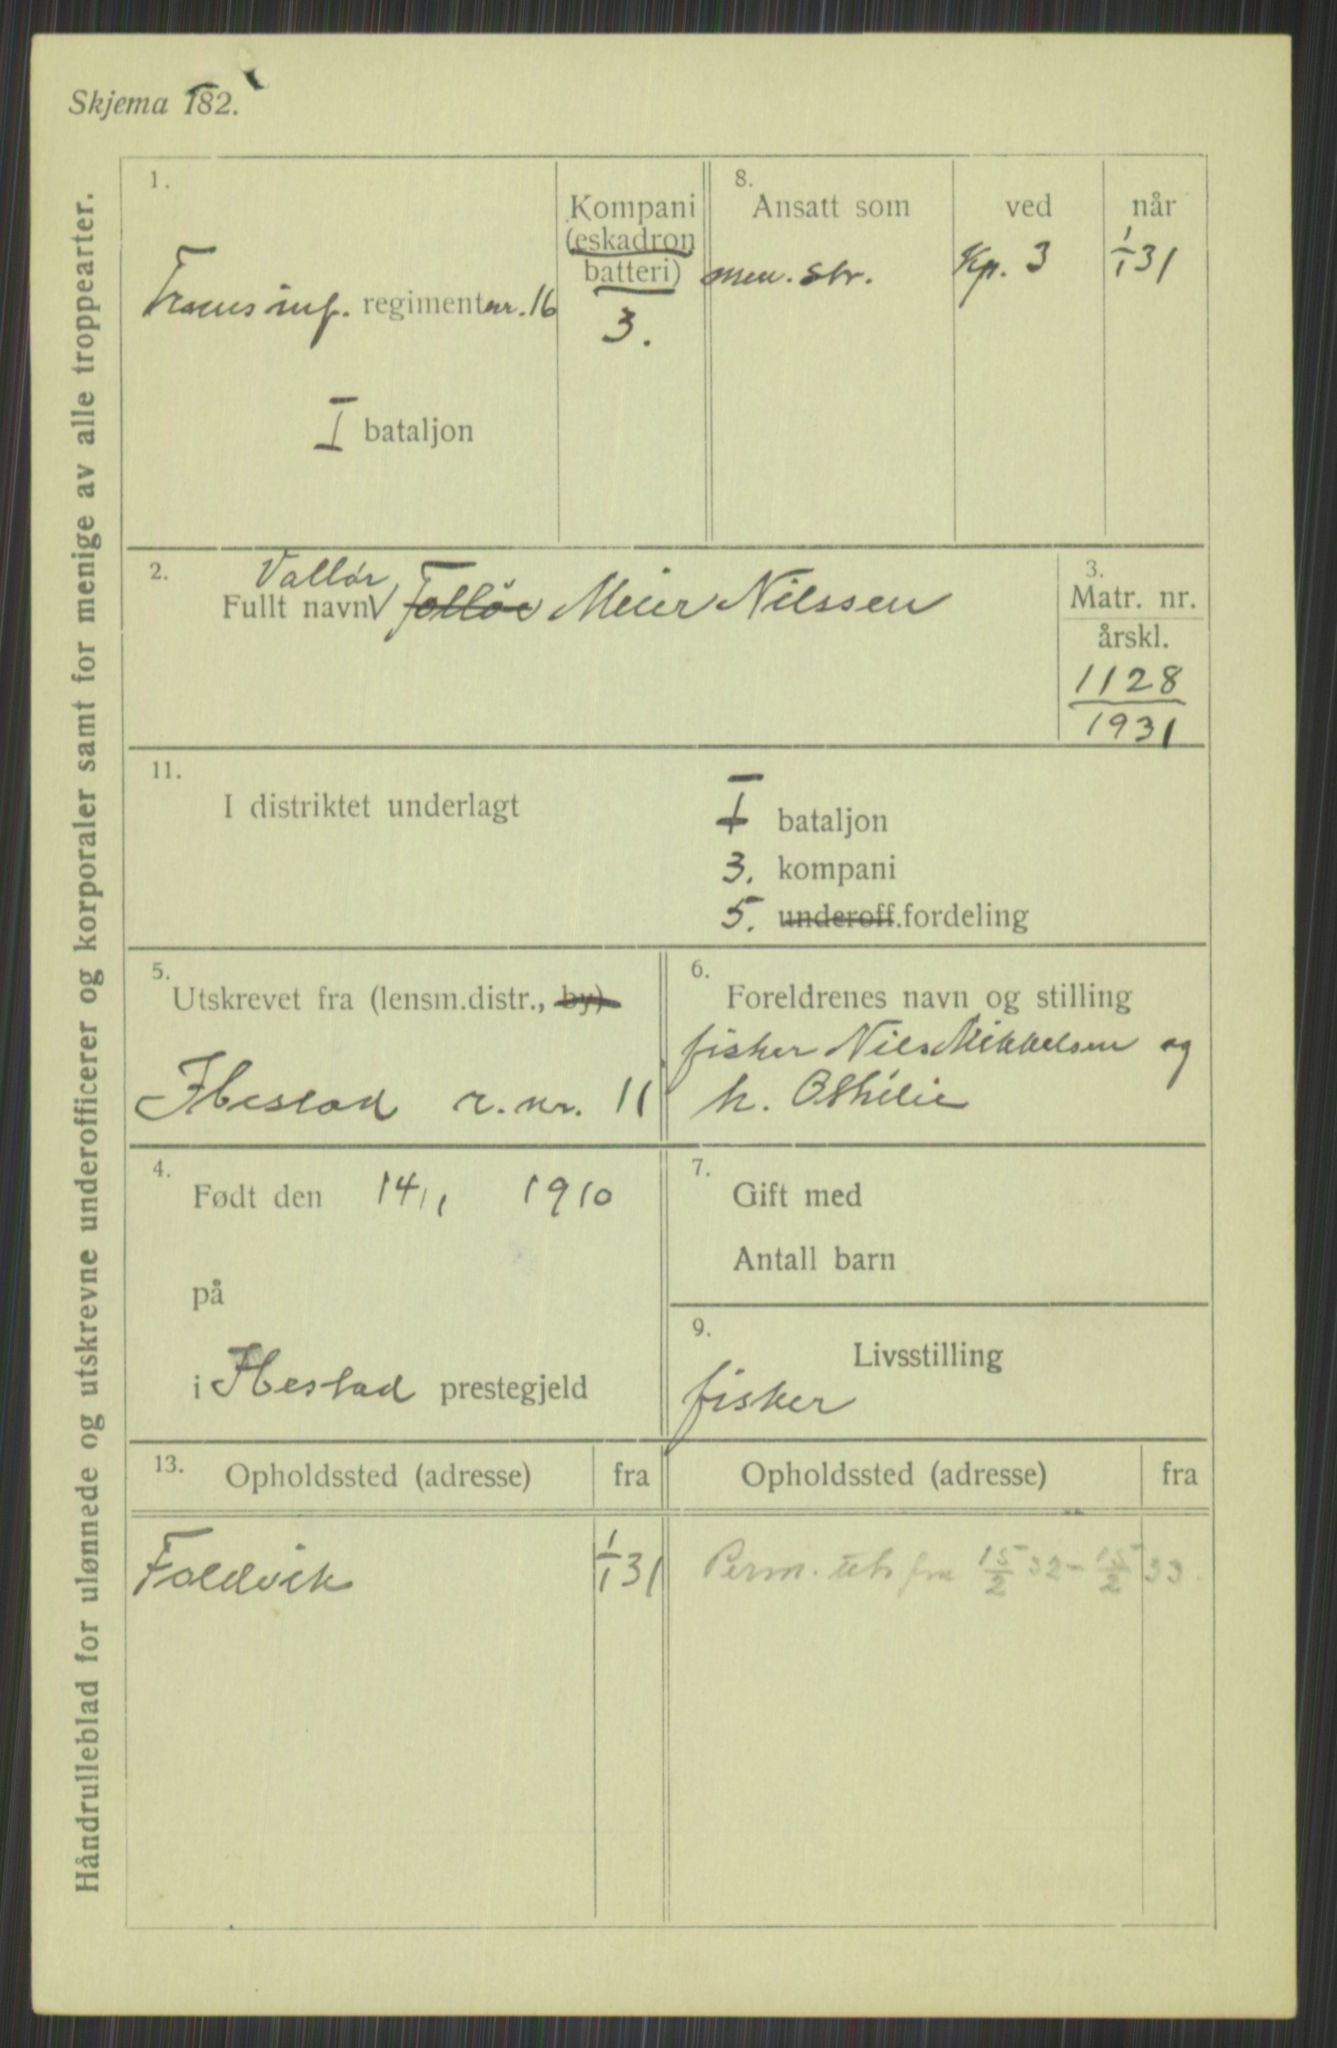 Skjema 182.
Håndrulleblad for ulønnede og utskrevne underofficerer og korporaler samt for menige av alle troppearter.
1.
Troms inf. regiment nr. 16
I bataljon
Kompani
(eskadron
batteri)
3.
8.
Ansatt som
ved
når
men. str.
Kp. 3
1/1 31
2.
Vallør
Fullt navn V Folløv Meier Nilssen
3.
Matr. nr.
årskl.
1128
1931
11.
I distriktet underlagt
I bataljon
3. kompani
5. underoff.fordeling
5.
Utskrevet fra (lensm.distr., by)
Ibestad r. nr. 11
6.
Foreldrenes navn og stilling
fisker Nils Mikkelsen og
h. Othilie
4.
Født den 14/1 1910
på
i Ibestad prestegjeld
7.
Gift med
Antall barn
9.
Livsstilling
fisker
13.
Opholdssted (adresse)
fra
Opholdssted (adresse)
fra
Foldvik
1/1 31
Perm. utb fra 15/2 32 - 15/2 33.